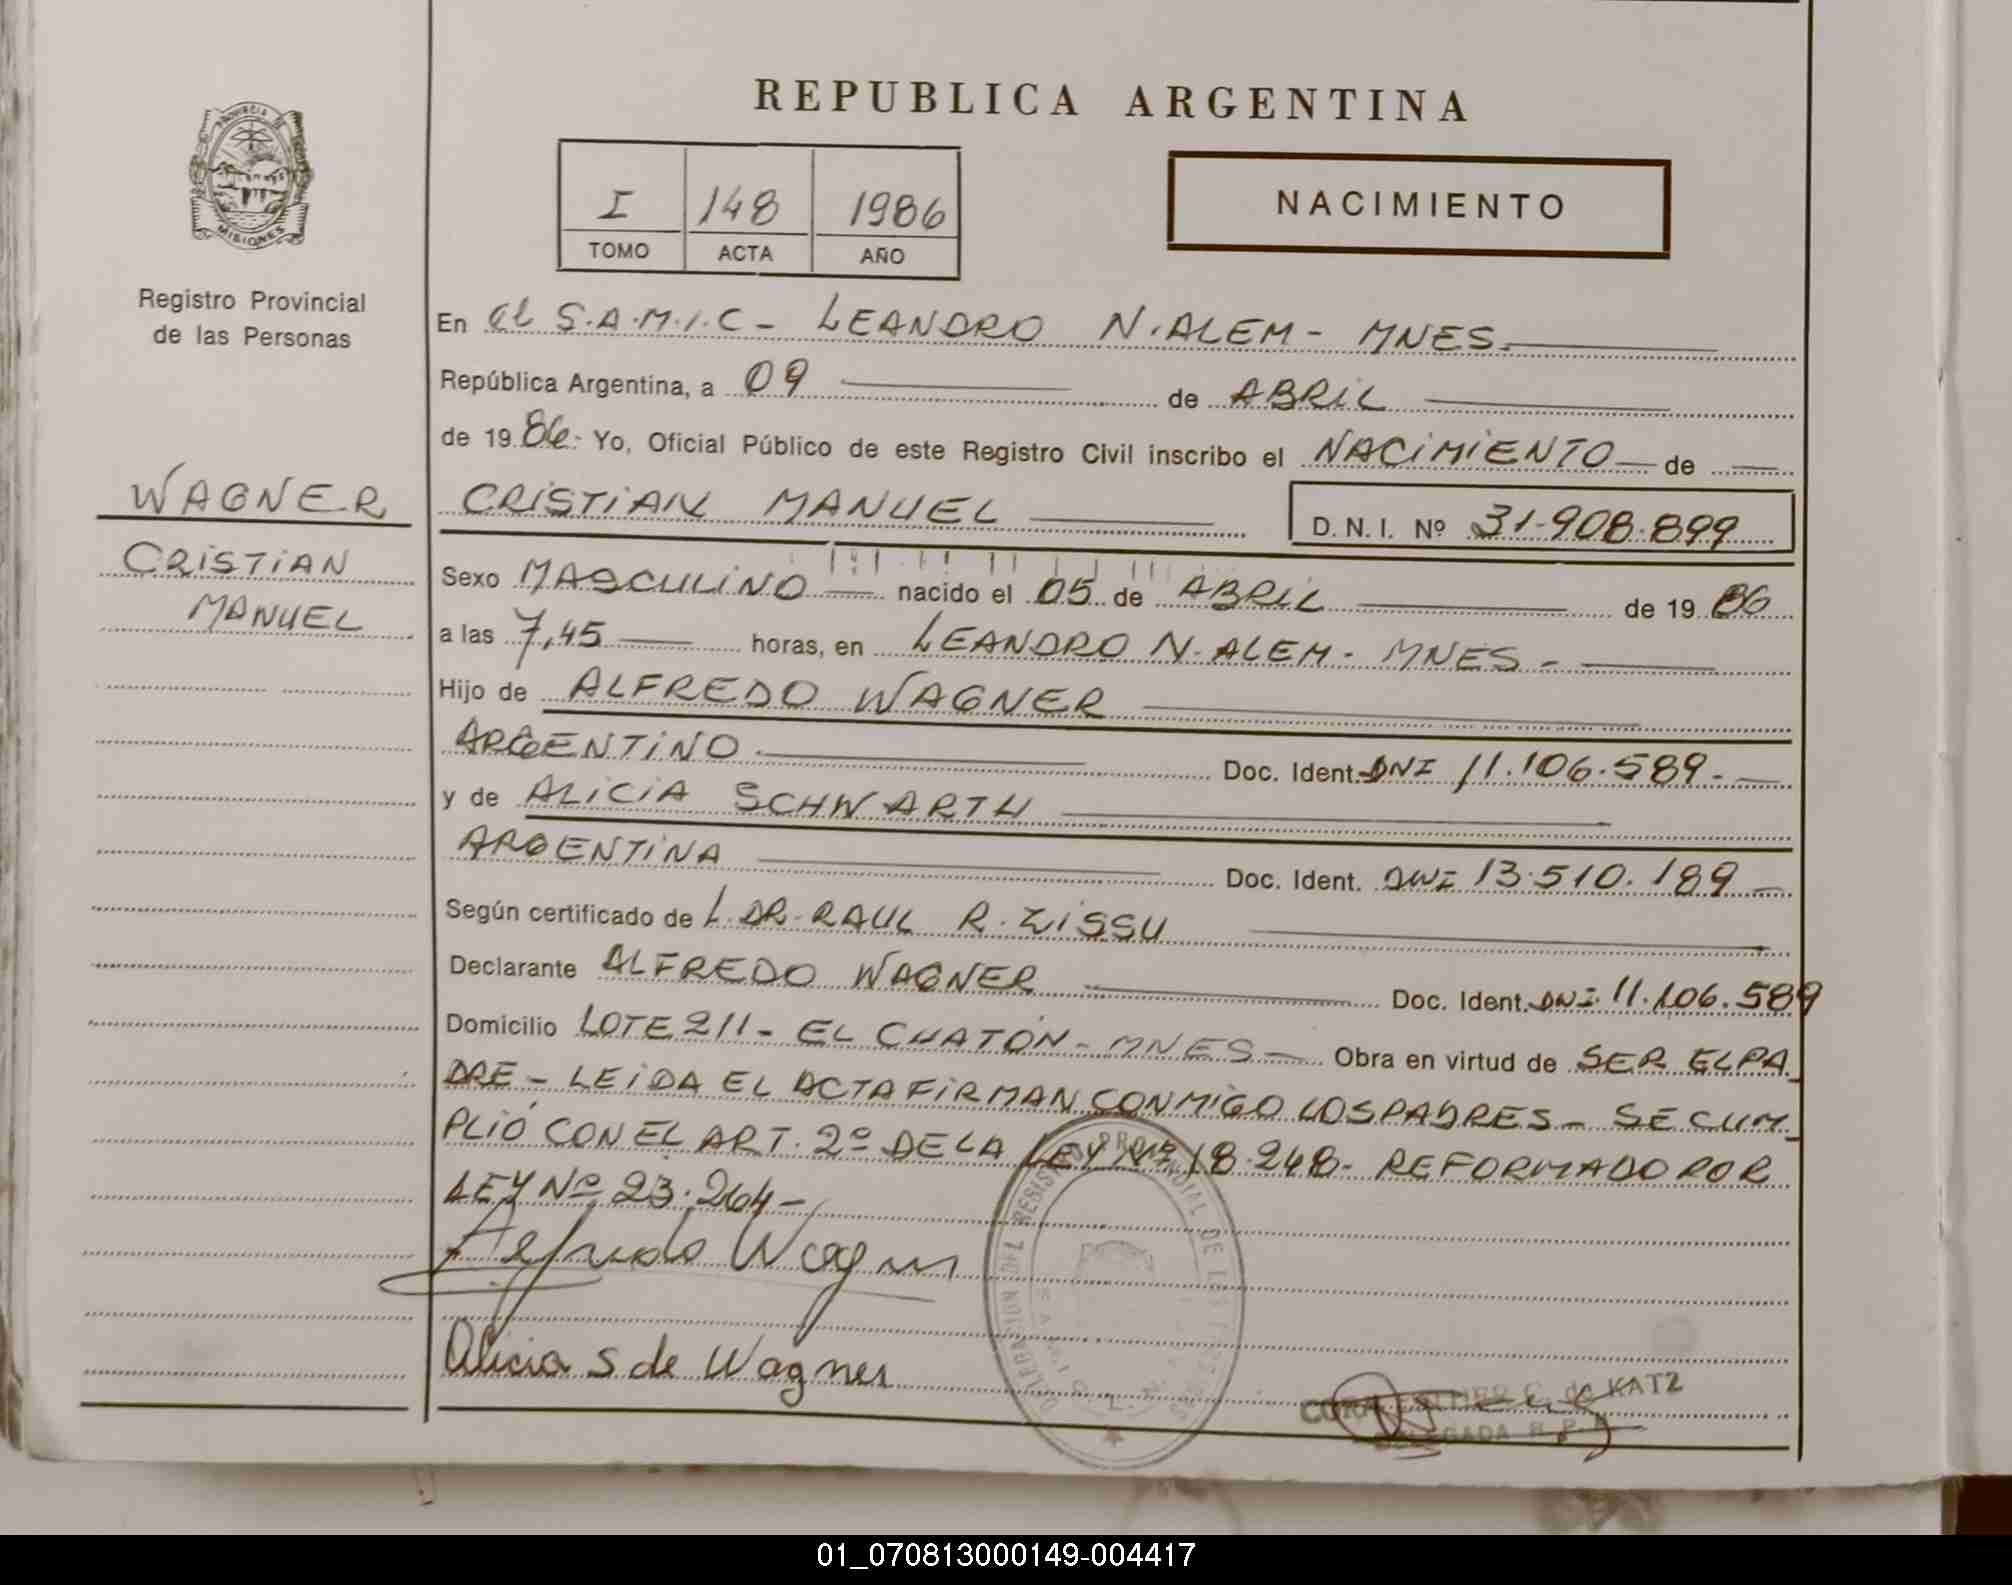 REPUBLICA ARGENTINA
PROVINCIA DE
MISIONES
I 148 1986
TOMO ACTA AÑO
NACIMIENTO
Registro Provincial
de las Personas
WAGNER
CRISTIAN
MANUEL
En el S.A.M.I.C - LEANDRO N. ALEM - MNES.
República Argentina, a 09 de ABRIL
de 19 86. Yo, Oficial Público de este Registro Civil inscribo el NACIMIENTO de
CRISTIAN MANUEL D. N. I. Nº 31.908.899
Sexo MASCULINO nacido el 05 de ABRIL de 19 86
a las 7,45 horas, en LEANDRO N. ALEM - MNES -
Hijo de ALFREDO WAGNER
ARGENTINO. Doc. Ident. DNI 11.106.589.-
y de ALICIA SCHWARTH
ARGENTINA Doc. Ident. DNI 13.510.189 -
Según certificado de L. DR. RAUL R. ZISSU
Declarante ALFREDO WAGNER Doc. Ident. DNI. 11.106.589
Domicilio LOTE 211 - EL CHATÓN - MNES - Obra en virtud de SER EL PA
DRE - LEIDA EL ACTA FIRMAN CONMIGO LOS PADRES - SE CUM
PLIÓ CON EL ART. 2º DE LA LEY Nº 18.248 - REFORMADO POR
LEY Nº 23.264 -
Alfredo Wagner
Alicia S de Wagner
DELEGACION DEL REGISTRO PROVINCIAL DE LAS PERSONAS
de KATZ
DELEGADA R. P.
01_070813000149-004417